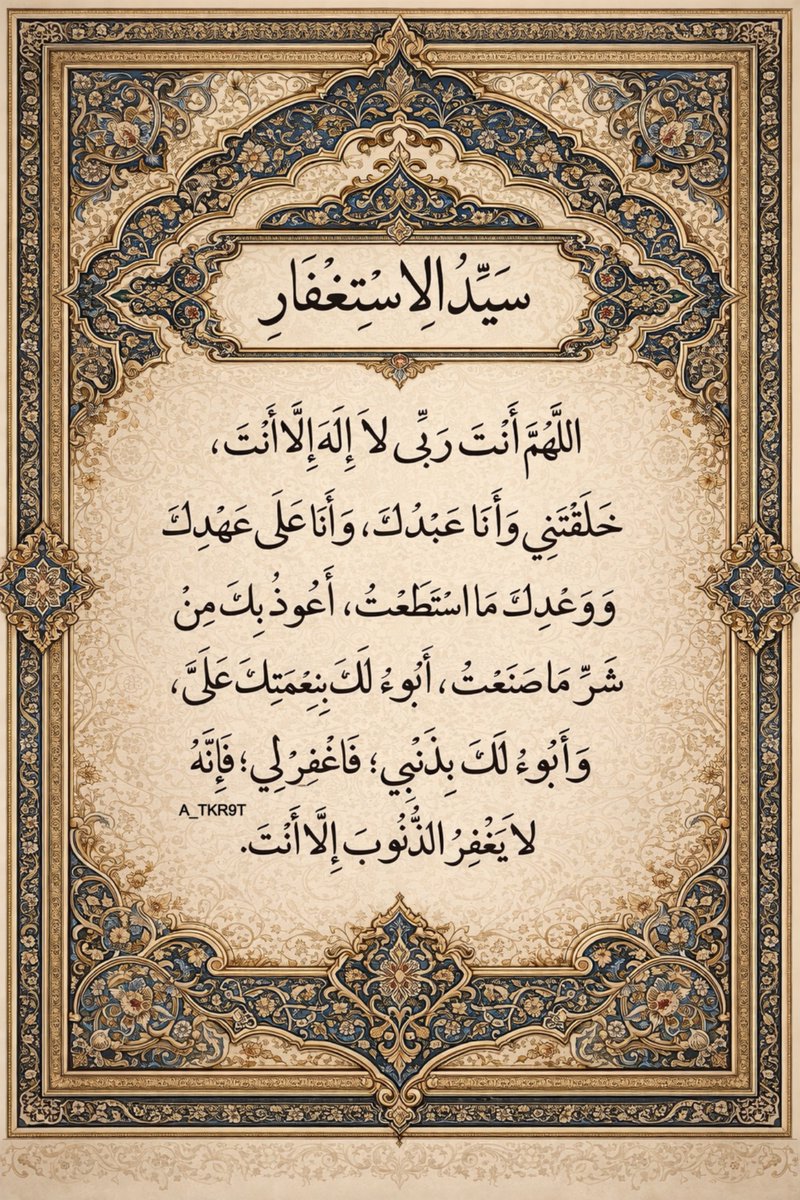 سَيِّدُ الِاسْتِغْفَارِ
اللَّهُمَّ أَنْتَ رَبِّى لاَ إِلَهَ إِلَّا أَنْتَ،
خَلَقْتَنِي وَأَنَا عَبْدُكَ، وَأَنَا عَلَى عَهْدِكَ
وَوَعْدِكَ مَا اسْتَطَعْتُ، أَعُوذُ بِكَ مِنْ
شَرِّ مَا صَنَعْتُ، أَبُوءُ لَكَ بِنِعْمَتِكَ عَلَىَّ،
وَأَبُوءُ لَكَ بِذَنْبِي؛ فَاغْفِرْ لِي؛ فَإِنَّهُ
A_TKR9T
لاَ يَغْفِرُ الذُّنُوبَ إِلَّا أَنْتَ.